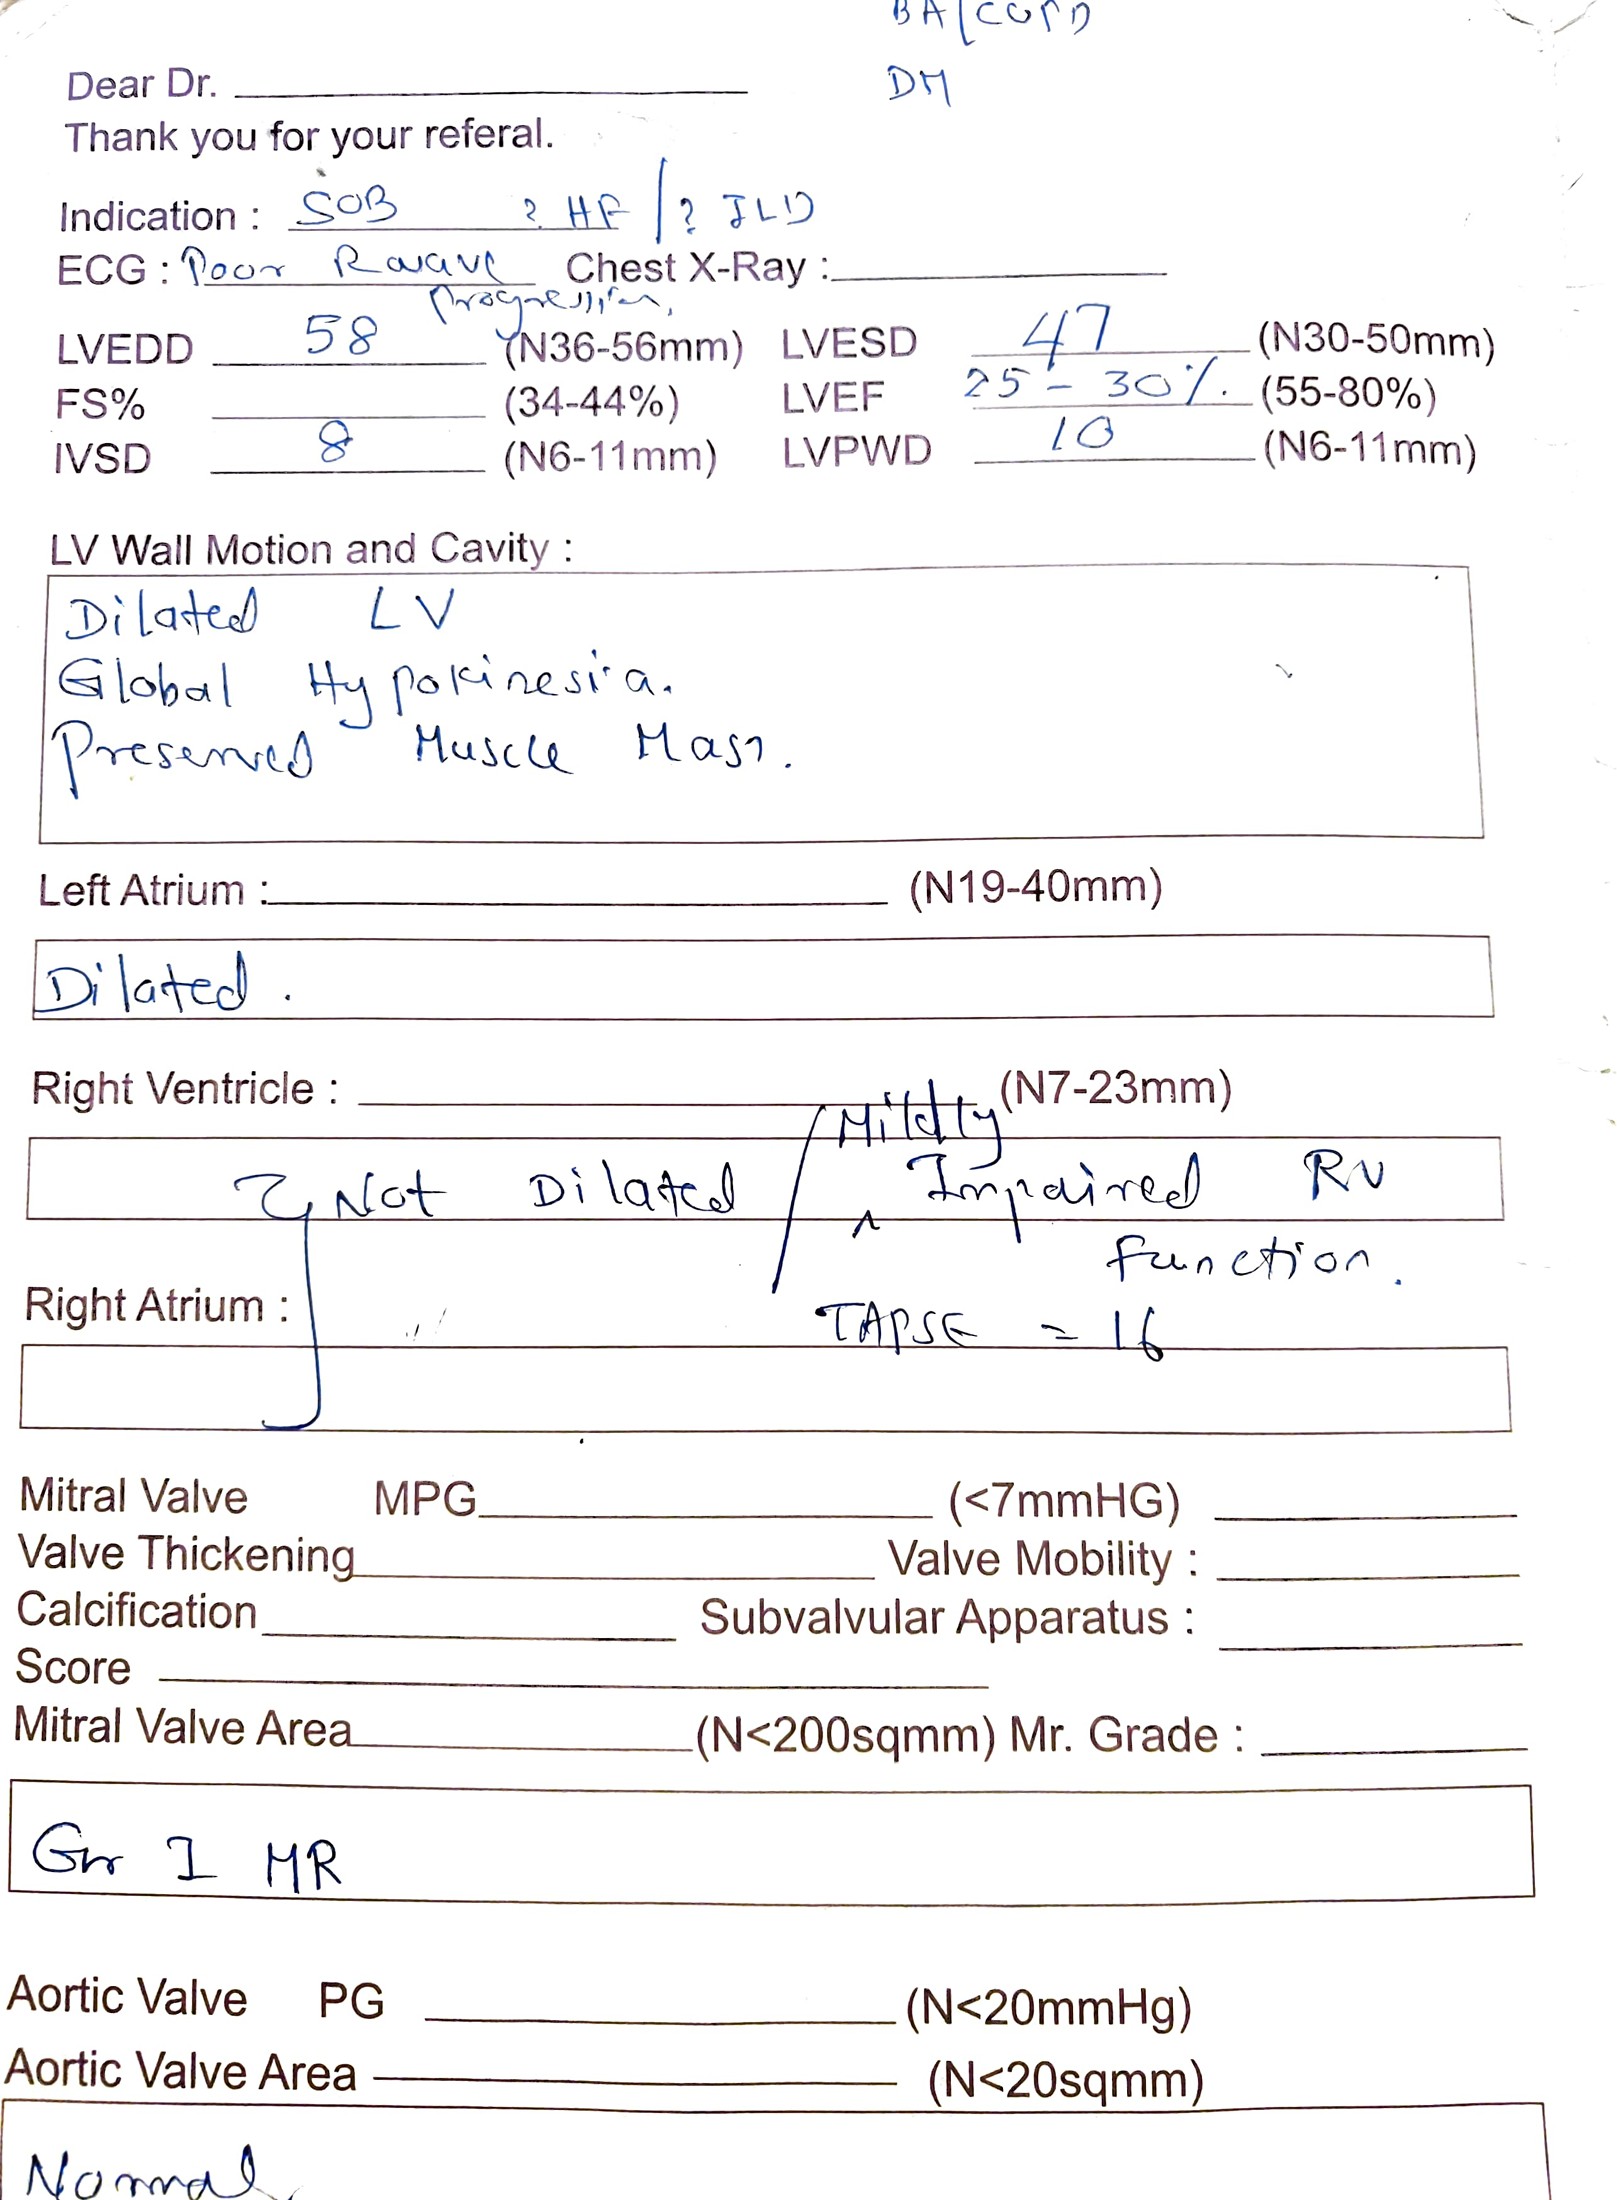 BA/COPD
Dear Dr.
DM
Thank you for your referal.
Indication : SOB ? HF / ? ILD
ECG : Poor R wave Chest X-Ray :
progression,
LVEDD 58 (N36-56mm) LVESD 47 (N30-50mm)
FS% (34-44%) LVEF 25 - 30%. (55-80%)
IVSD 8 (N6-11mm) LVPWD 10 (N6-11mm)
LV Wall Motion and Cavity :
Dilated LV
Global Hypokinesia.
Preserved Muscle Mass.
Left Atrium : (N19-40mm)
Dilated .
Right Ventricle : (N7-23mm)
Mildly
Not Dilated / ^ Impaired RV
function.
Right Atrium :
TAPSE = 16
Mitral Valve MPG (<7mmHG)
Valve Thickening Valve Mobility :
Calcification Subvalvular Apparatus :
Score
Mitral Valve Area (N<200sqmm) Mr. Grade :
Gr I MR
Aortic Valve PG (N<20mmHg)
Aortic Valve Area (N<20sqmm)
Normal